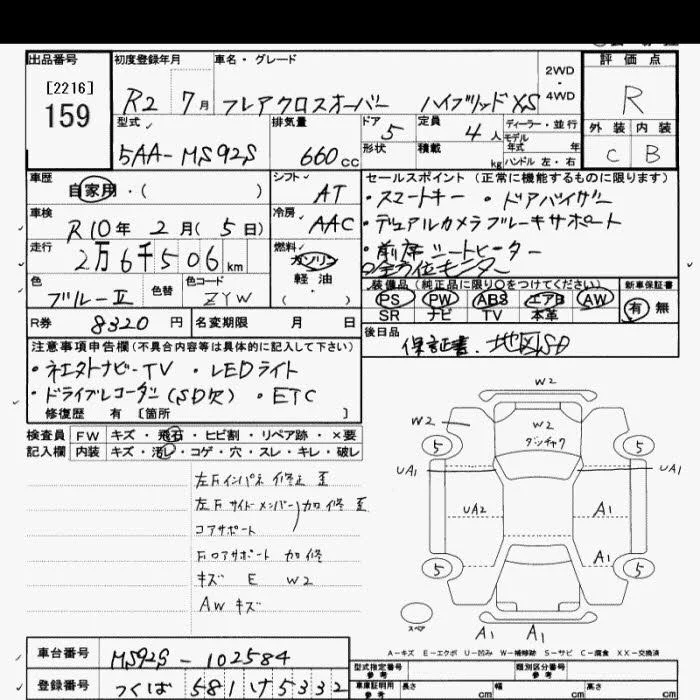 出品番号 初度登録年月 車名・グレード 評価点
[2216]
159
R2 7月 フレアクロスオーバー ハイブリッドXS
2WD
・
4WD
R
型式 排気量 ドア 定員 ディーラー・並行 外装 内装
5AA-MS92S 660cc 5 4人 モデル年式 年 C B
形状 積載 kg ハンドル 左・右
車歴 自家用・( ) シフト AT
セールスポイント (正常に機能するものに限ります)
・スマートキー ・ドアバイザー
・デュアルカメラブレーキサポート
・前席シートヒーター
全方位モニター
車検 R10年 2月(5日) 冷房 AAC
走行 2万6千506km 燃料 ガソリン
軽油
・( )
色 ブルーII 色替 色コード ZYW
装備品 (純正品に限り○をつけてください) 新車保証書
PS PW ABS エアB AW 有 無
SR ナビ TV 本革
R券 8320円 名変期限 月 日
後日品 保証書、地図SD
注意事項申告欄(不具合内容等は具体的に記入して下さい)
・ネエストナビ-TV ・LEDライト
・ドライブレコーダー(SD欠) ・ETC
修復歴 有 [箇所 ]
検査員 FW キズ・飛石・ヒビ割・リペア跡・×要
記入欄 内装 キズ・汚レ・コゲ・穴・スレ・キレ・破レ
左Fインパネ 修正 歪
左Fサイドメンバー 加修 歪
コアサポート
Fロアサポート 加修
キズ E W2
AW キズ
W2
W2
W2
ダンチャク
5
5
UA1
UA1
UA2
A1
A1
5
5
スペア
A1 A1
A-キズ E-エクボ U-凹み W-補修跡 S-サビ C-腐食 XX-交換済
車台番号 MS92S-102584
登録番号 つくば 581 け 5332
型式指定番号 参考 類別区分番号 参考
車庫証明用 参考 長さ cm 幅 cm 高さ cm